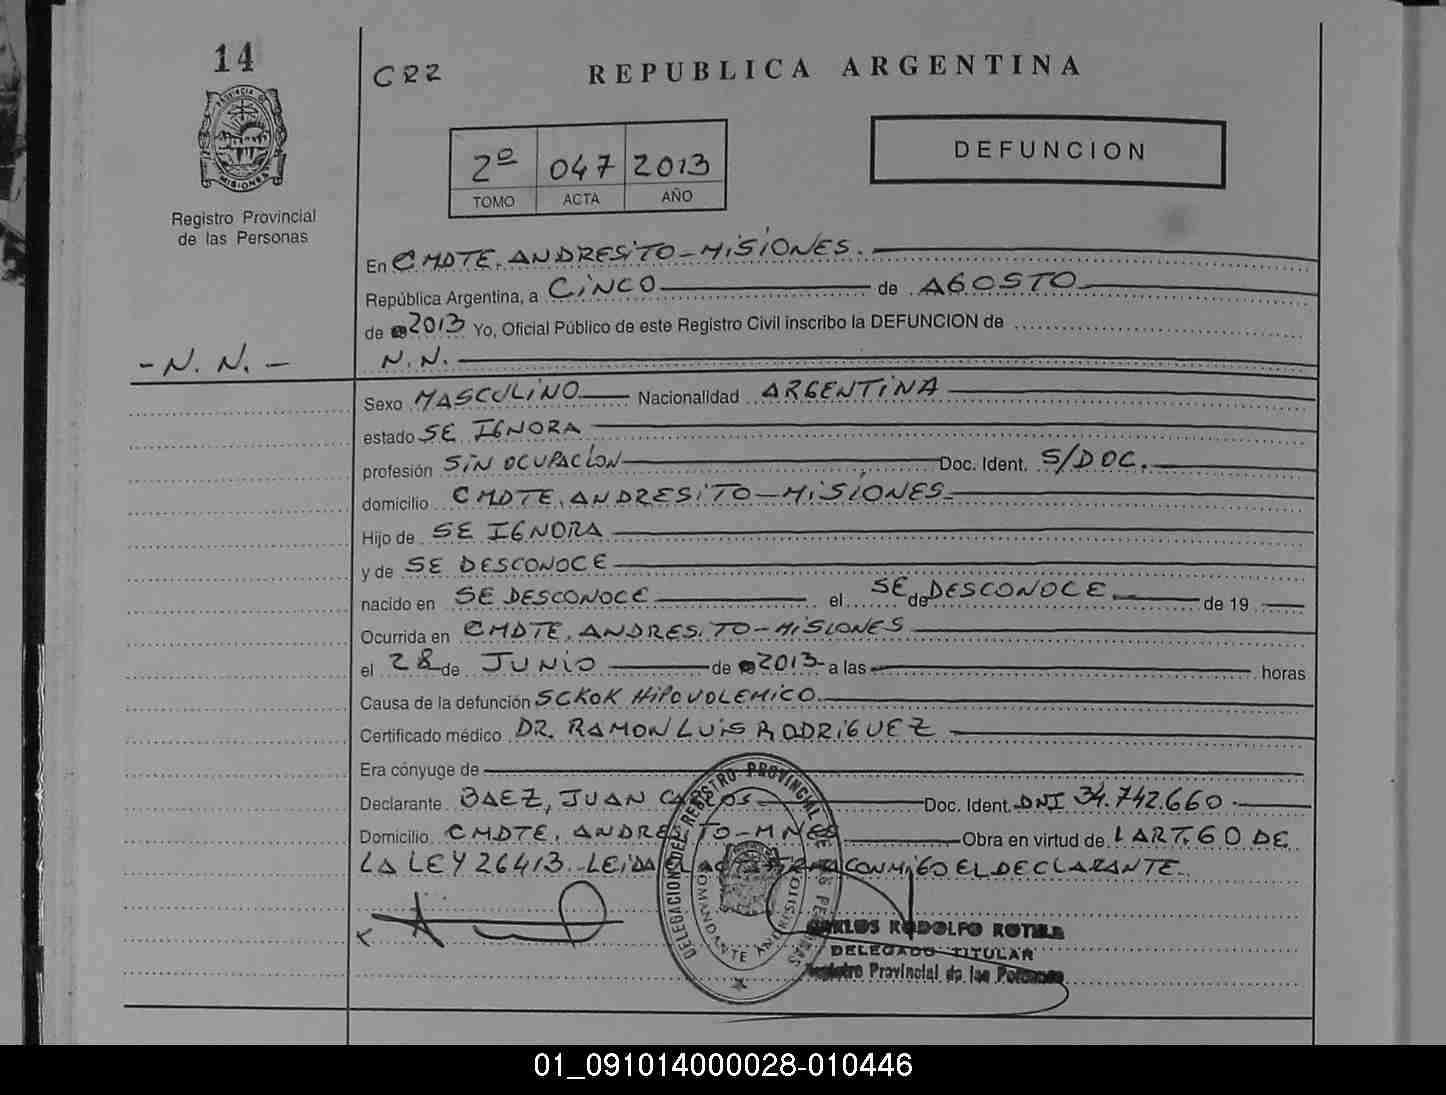 14
CR2
REPUBLICA ARGENTINA
PROVINCIA D
MISIONES
Registro Provincial
de las Personas
2º 047 2013
TOMO ACTA AÑO
DEFUNCION
En CMDTE. ANDRESiTO - MiSiONES.
República Argentina, a CiNCO de AGOSTO
de 2013 Yo, Oficial Público de este Registro Civil inscribo la DEFUNCION de
- N. N. - N. N.
Sexo MASCULiNO Nacionalidad ARGENTiNA
estado SE IGNORA
profesión SiN OCUPACiON Doc. Ident. S/DOC.
domicilio CMDTE. ANDRESiTO - MiSiONES
Hijo de SE IGNORA
y de SE DESCONOCE
nacido en SE DESCONOCE el SE de DESCONOCE de 19
Ocurrida en CMDTE. ANDRESiTO - MiSiONES
el 28 de JUNiO de 2013 a las horas
Causa de la defunción SCKOK HiPOVOLEMiCO
Certificado médico DR. RAMON LUiS RODRiGUEZ
Era cónyuge de
Declarante BAEZ, JUAN CARLOS Doc. Ident. DNI 34.742.660
Domicilio CMDTE. ANDRESiTO - MNES Obra en virtud de L ART. 60 DE
LA LEY 26413. LEiDA EL ACTA FiRMA CONMiGO EL DECLARANTE
DELEGACION DEL REGISTRO PROVINCIAL DE LAS PERSONAS
COMANDANTE ANDRESITO
CARLOS RODOLFO
DELEGADO TITULAR
Registro Provincial de las Personas
01_091014000028-010446